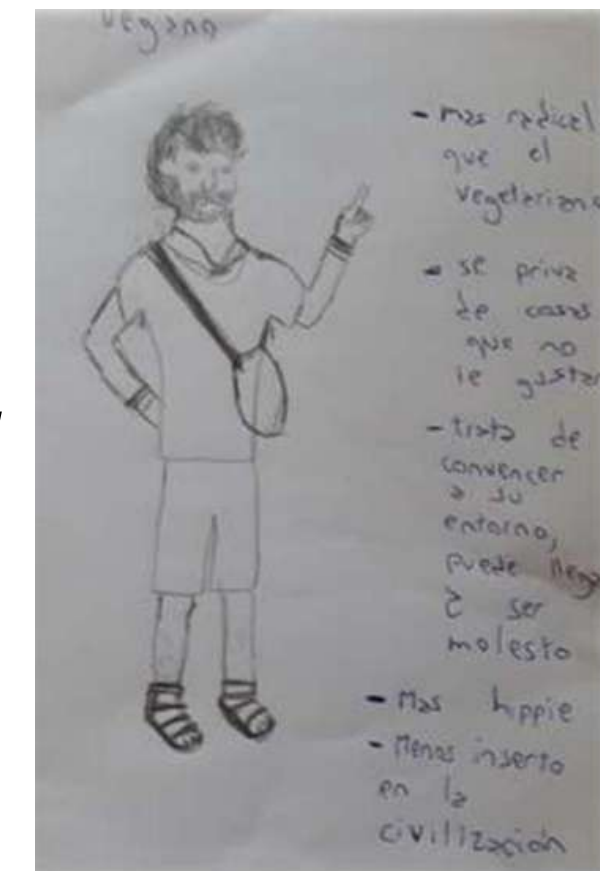 vegano
- mas radical
que el
vegetariano
- se priva
de cosas
que no
le gustan
- trata de
convencer
a su
entorno,
puede llegar
a ser
molesto
- Mas hippie
- Menos inserto
en la
civilización